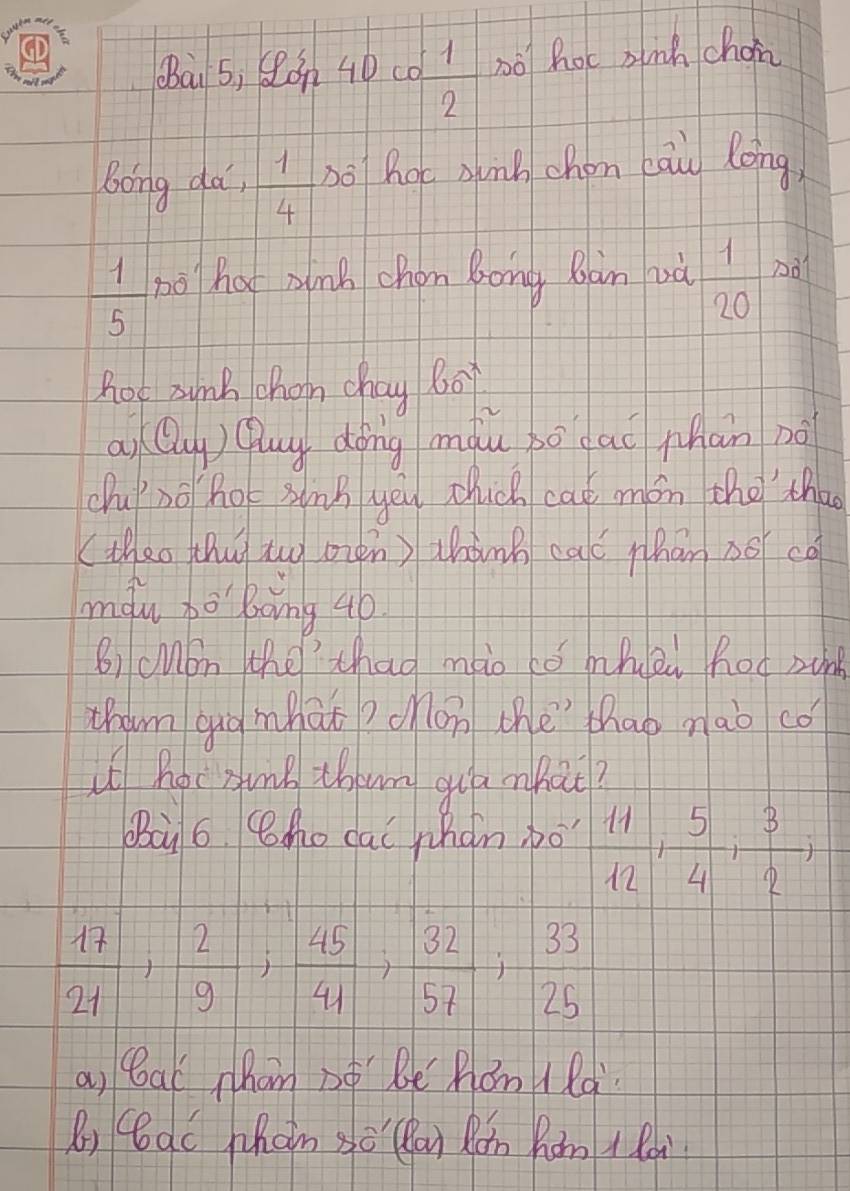 Luyện nét chữ
GD
Rèn nết người
Bài 5, Lớp 4D có 1/2 số học sinh chọn
bóng đá, 1/4 số học sinh chọn cầu lông,
1/5 số học sinh chọn bóng bàn và 1/20 số
học sinh chọn chạy bộ.
a) (Quy) Quy đồng mẫu số các phân số
chỉ số học sinh yêu thích các môn thể thao
(theo thứ tự trên) thành các phân số có
mẫu số bằng 40.
b) Môn thể thao nào có nhiều học sinh
tham gia nhất? Môn thể thao nào có
ít học sinh tham gia nhất?
Bài 6. Cho các phân số 11/12; 5/4; 3/2;
17/21; 2/9; 45/41; 32/57; 33/25
a) Các phân số bé hơn 1 là:
b) Các phân số (là) lớn hơn 1 là: